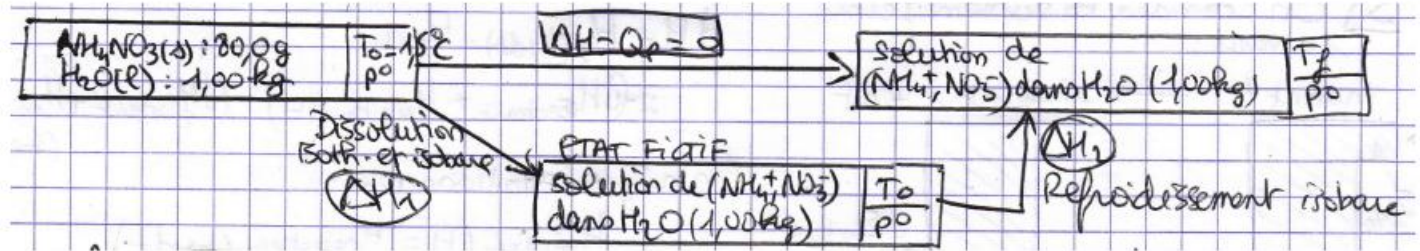 NH4NO3(s) : 80,0g
H2O(l) : 1,00 kg
T0=15°C
p°
ΔH=Qp=0
solution de
(NH4+,NO3-) dans H2O (1,00kg)
Tf
p°
Dissolution
isoth. et isobare
ΔH1
ETAT FICTIF
solution de (NH4+,NO3-)
dans H2O (1,00kg)
T0
p°
ΔH2
Refroidissement isobare